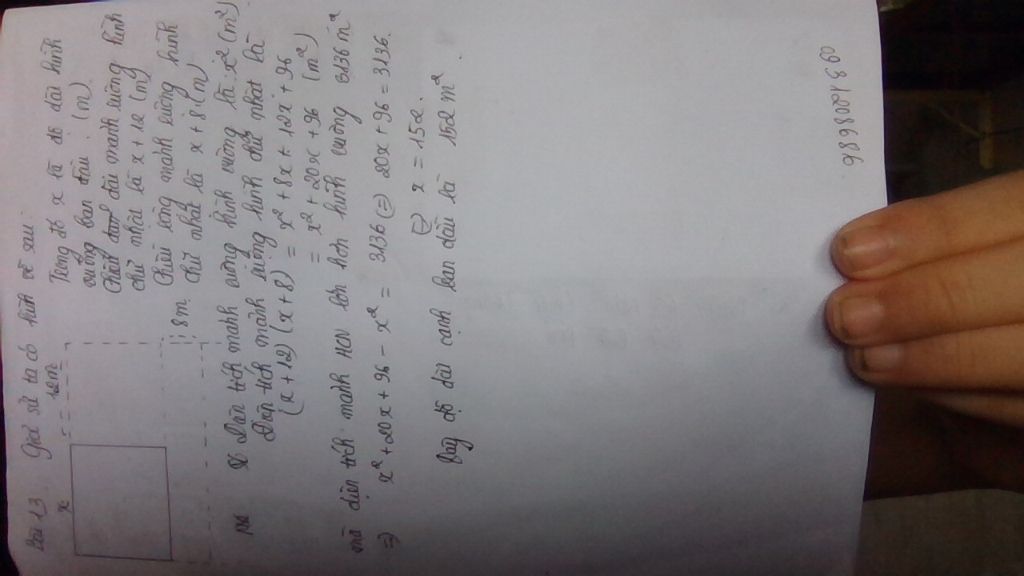 Bài 13 Giả sử ta có hình vẽ sau:
x 12m
8m
Trong đó x là độ dài hình
vuông ban đầu (m)
Chiều dài mảnh vuông hình
chữ nhật là x + 12 (m)
Chiều rộng mảnh vuông hình
chữ nhật là x + 8 (m)
Diện tích mảnh vuông hình vuông là: x² (m²)
Diện tích mảnh vuông hình chữ nhật là
(x + 12)(x + 8) = x² + 8x + 12x + 96
= x² + 20x + 96 (m²)
mà diện tích mảnh HCN lớn hơn hình vuông 3136 m²
⇒ x² + 20x + 96 - x² = 3136 ⇔ 20x + 96 = 3136.
⇔ x = 152.
Vậy độ dài cạnh ban đầu là 152 m².